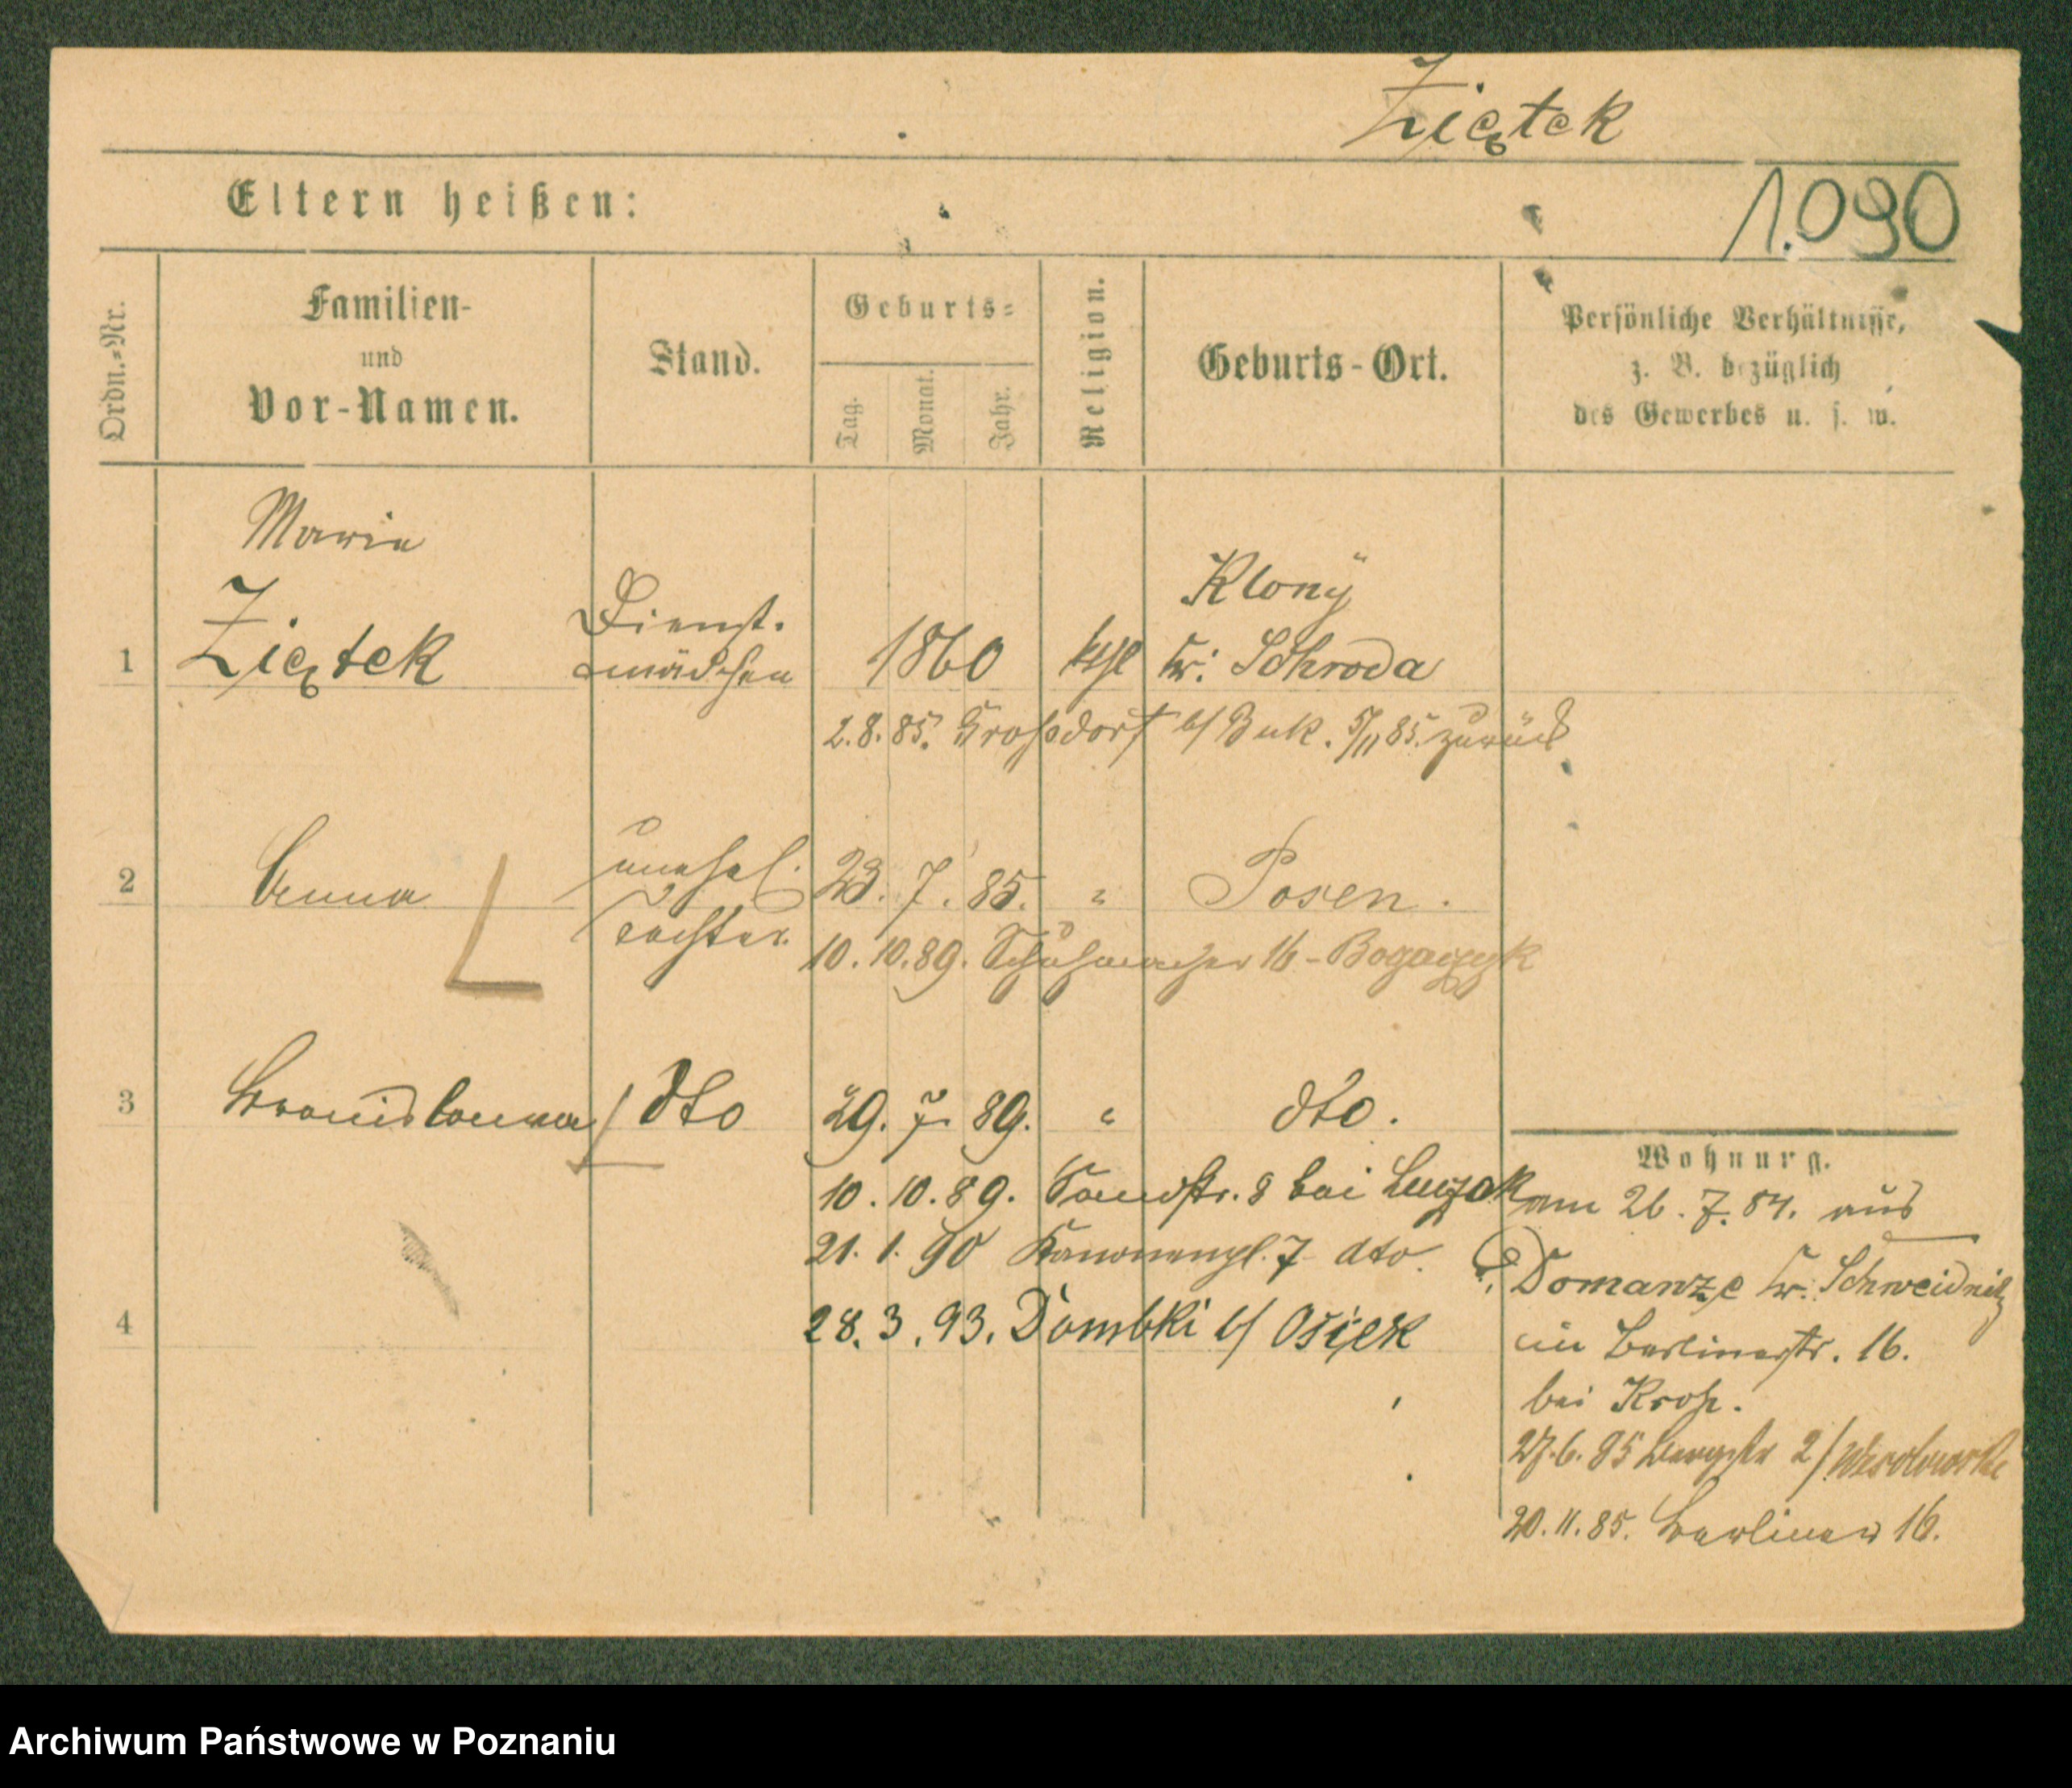 Ziętek
Eltern heißen:
1.090
Ordn.-Nr.
Familien-
und
Vor-Namen.
Stand.
Geburts-
Tag.
Monat.
Jahr.
Religion.
Geburts-Ort.
Persönliche Verhältnisse,
z. B. bezüglich
des Gewerbes u. s. w.
Maria
1 Ziętek Dienst-
mädchen 1860 kthl Klony
Kr: Schroda
2.8.85. Großdorf b/ Buk. 5/11 85. zurück
2 Anna unehel.
Tochter 23. 7. 85. " Posen.
10.10.89. Schuhmacher 16 - Bogaczyk
3 Bronislawa dto 29. 7. 89. " dto.
10.10.89. Sandstr. 8 bei Luczak
21. 1. 90 Kanonenpl. 7 dto.
4 28. 3. 93. Dombki b/ Osiek
Wohnung.
am 26. 7. 84. aus
Domanze Kr. Schweidnitz
in Berlinerstr. 16.
bei Kroh.
27.6.85 Bergstr 2/
20.11.85. Berliner 16.
Archiwum Państwowe w Poznaniu